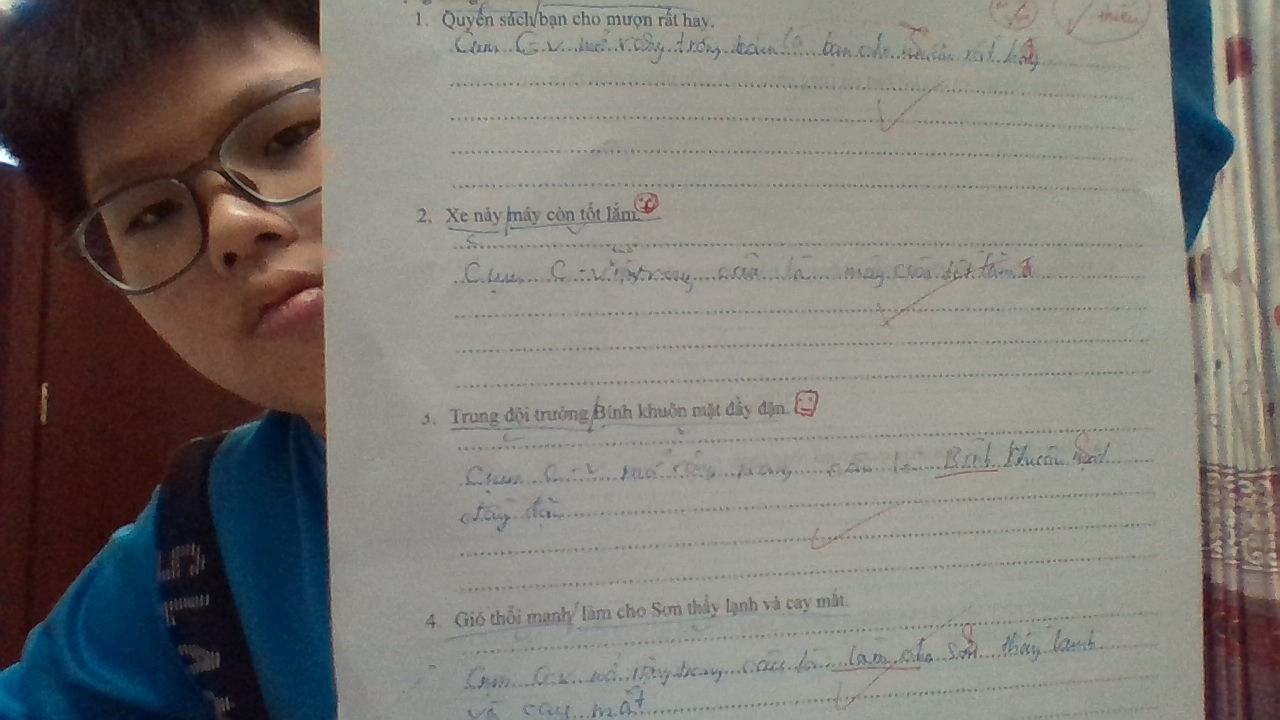 1. Quyển sách/bạn cho mượn rất hay.
Cụm C-V mở rộng trong câu là làm cho rất hay
2. Xe này/máy còn tốt lắm.
Cụm C-V trong câu là máy còn tốt lắm
3. Trung đội trưởng/Bính khuôn mặt đầy đặn.
Cụm C-V mở rộng trong câu là Bính khuôn mặt
đầy đặn
4. Gió thổi mạnh/làm cho Sơn thấy lạnh và cay mắt.
Cụm C-V mở rộng trong câu là làm cho Sơn thấy lạnh
và cay mắt
thiếu